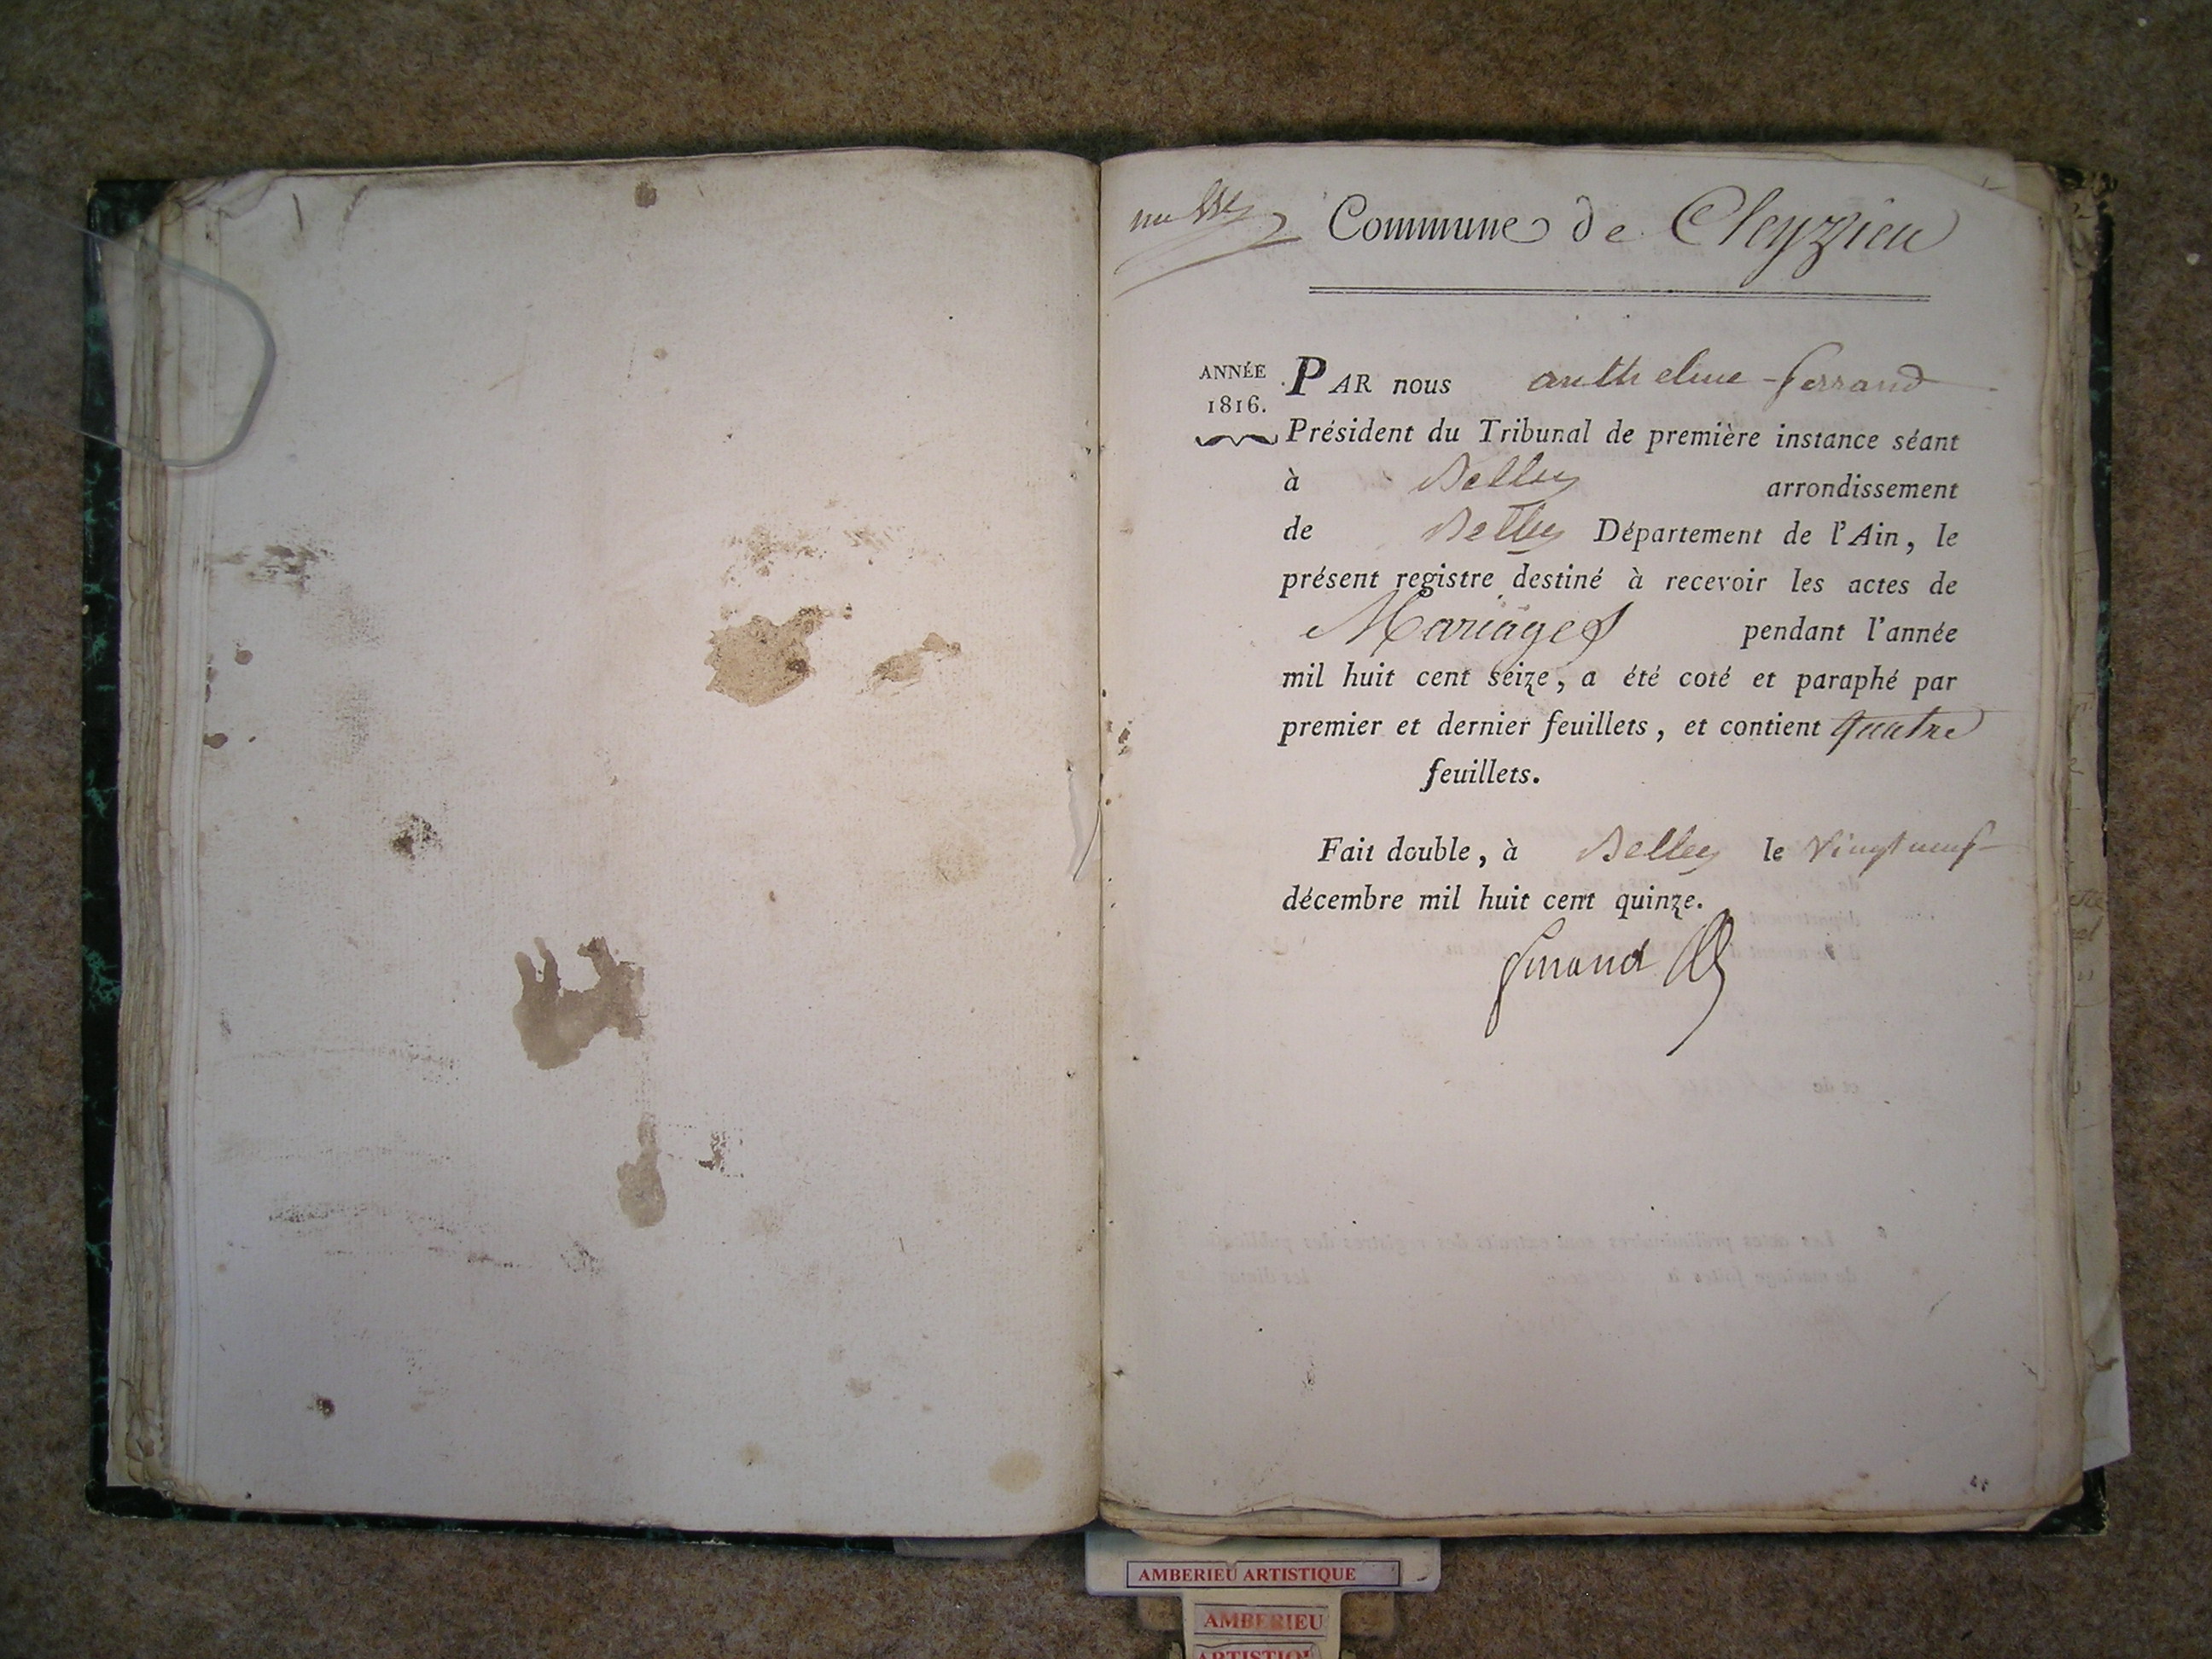 Commune de Cleyzieu
ANNÉE
1816.
PAR nous anthelme ferrand
Président du Tribunal de première instance séant
à Belley arrondissement
de Belley Département de l'Ain, le
présent registre destiné à recevoir les actes de
Mariages pendant l'année
mil huit cent seize, a été coté et paraphé par
premier et dernier feuillets, et contient quatre
feuillets.
Fait double, à Belley le Vingt neuf
décembre mil huit cent quinze.
ferrand
AMBERIEU ARTISTIQUE
AMBERIEU